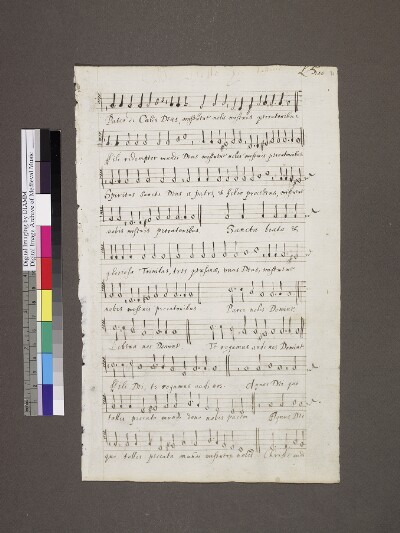 Pater de Cælis Deus, miserere nobis miseris peccatoribus.
Fili redemptor mundi Deus miserere nobis miseris peccatoribus
Spiritus Sancte Deus a patre et filio procedens, miserere
nobis miseris peccatoribus. Sancta beata &
gloriosa Trinitas, tres personæ, unus Deus, miserere
nobis miseris peccatoribus Parce nobis Domine
Libera nos Domine Te rogamus audi nos Domine
Fili Dei, te rogamus audi nos. Agnus Dei qui
tollis peccata mundi dona nobis pacem Agnus Dei
qui tollis peccata mundi miserere nobis Christe audi
Digital Imaging by DIAMM
Digital Image Archive of Medieval Music